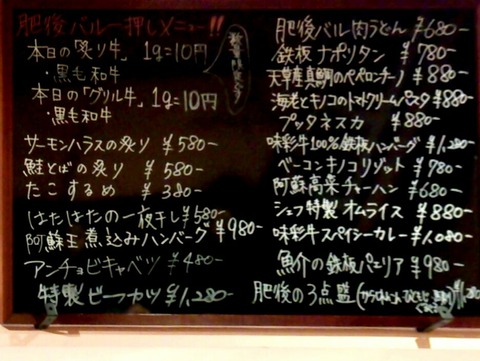 肥後バル一押しメニュー!!
本日の「炙り牛」 1g=10円
・黒毛和牛
本日の「グリル牛」 1g=10円
・黒毛和牛
数量限定
サーモンハラスの炙り ¥580-
鮭とばの炙り ¥580-
たこするめ ¥380-
はたはたの一夜干し ¥580-
阿蘇王煮込みハンバーグ ¥980-
アンチョビキャベツ ¥480-
特製ビーフカツ ¥1,280-
肥後バル肉うどん ¥680-
鉄板ナポリタン ¥780-
天草産真鯛のペペロンチーノ ¥880-
海老とキノコのトマトクリームパスタ ¥880-
プッタネスカ ¥880-
味彩牛100%鉄板ハンバーグ ¥1,280-
ベーコンキノコリゾット ¥780-
阿蘇高菜チャーハン ¥680-
シェフ特製オムライス ¥880-
味彩牛スパイシーカレー ¥1,080-
魚介の鉄板パエリア ¥980-
肥後の3点盛(からしれんこん ¥1,280